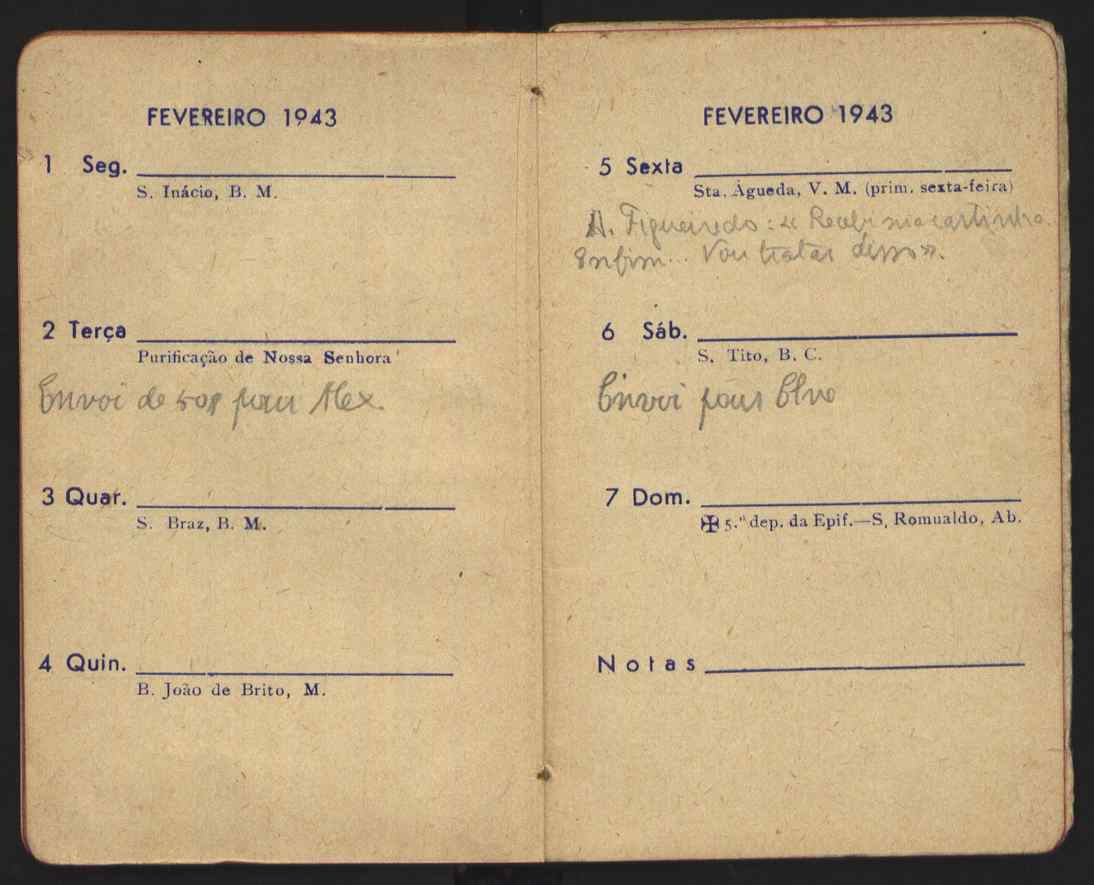 FEVEREIRO 1943
1 Seg.
S. Inácio, B. M.
2 Terça
Purificação de Nossa Senhora
Envoi de 50$ pour Alex.
3 Quar.
S. Braz, B. M.
4 Quin.
B. João de Brito, M.
FEVEREIRO 1943
5 Sexta
Sta. Águeda, V. M. (prim. sexta-feira)
A. Figueiredo: « Recebi sua cartinha.
Enfim... Vou tratar disso».
6 Sáb.
S. Tito, B. C.
Envoi pour
7 Dom.
✠ 5.ª dep. da Epif.—S. Romualdo, Ab.
Notas